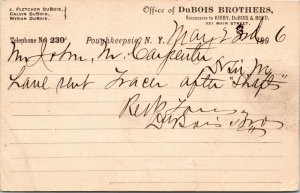 J. FLETCHER DUBOIS,
CALVIN DUBOIS,
MYRON DUBOIS.
Office of DUBOIS BROTHERS,
Successors to KIRBY, DUBOIS & BOYD,
321 MAIN STREET,
Telephone No 230
Poughkeepsie, N. Y. May 23d 1896
Mr John, M. Carpenter
N.Y.
Have sent Tracer after "Shafts"
Resp Yours
DuBois Bros